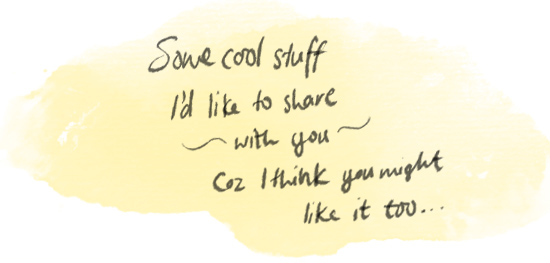 Some cool stuff
I'd like to share
~ with you ~
Coz I think you might
like it too...